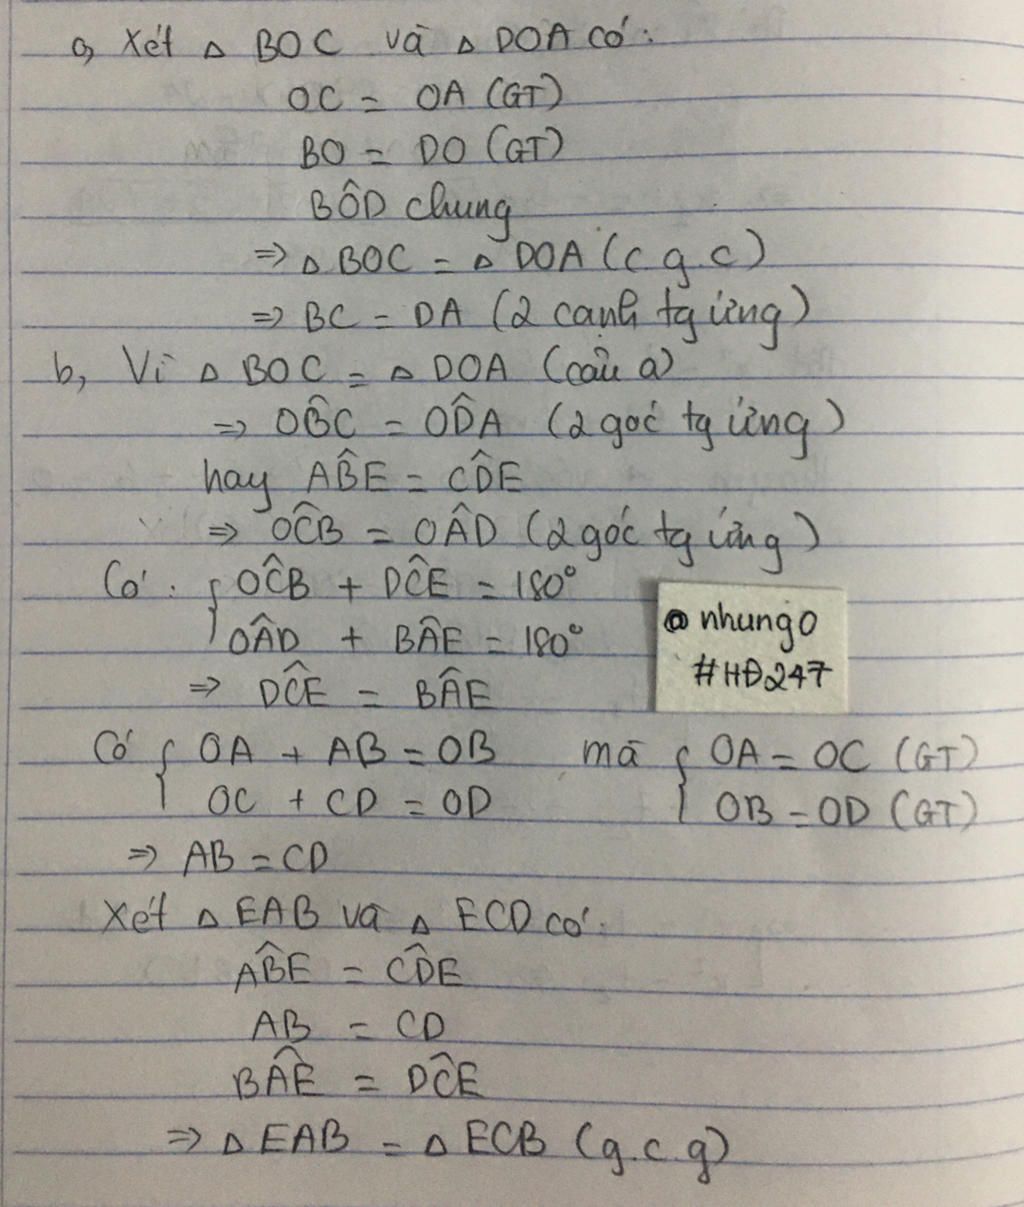 a, Xét △ BOC và △ DOA có:
OC = OA (GT)
BO = DO (GT)
BÔD chung
=> △ BOC = △ DOA (c g.c)
=> BC = DA (2 cạnh tg ứng)
b, Vì △ BOC = △ DOA (câu a)
=> OB̂C = OD̂A (2 góc tg ứng)
hay AB̂E = CD̂E
=> OĈB = OÂD (2 góc tg ứng)
Có: { OĈB + DĈE = 180°
OÂD + BÂE = 180°
@ nhung0
#HĐ247
=> DĈE = BÂE
Có { OA + AB = OB mà { OA = OC (GT)
OC + CD = OD OB = OD (GT)
=> AB = CD
Xét △ EAB và △ ECD có:
AB̂E = CD̂E
AB = CD
BÂE = DĈE
=> △ EAB = △ ECB (g.c.g)